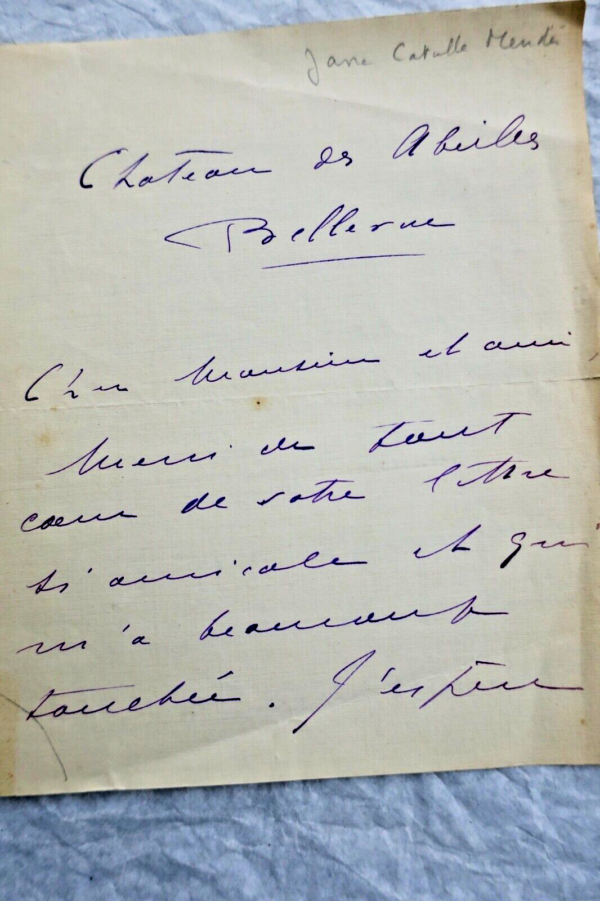 Jane Catulle Mendès
Chateau des Abeilles
Bellevue
Cher Monsieur et ami
Merci de tout
cœur de votre lettre
si amicale et qui
m'a beaucoup
touchée. J'espère